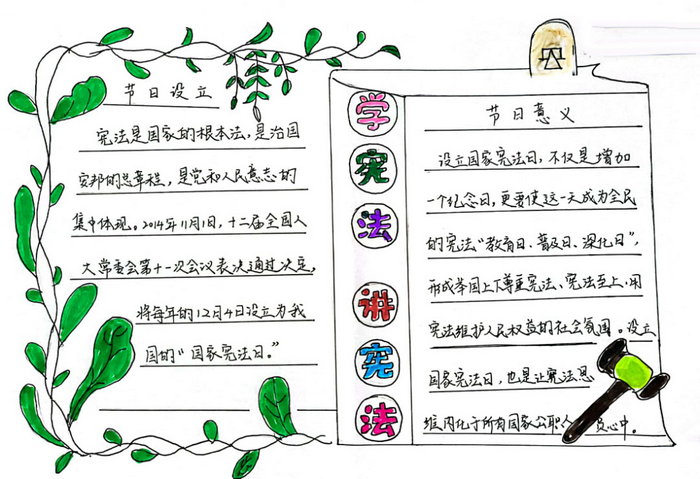 节日设立
宪法是国家的根本法，是治国
安邦的总章程，是党和人民意志的
集中体现。2014年11月1日，十二届全国人
大常委会第十一次会议表决通过决定，
将每年的12月4日设立为我
国的“国家宪法日。”
学
宪
法
讲
宪
法
节日意义
设立国家宪法日，不仅是增加
一个纪念日，更要使这一天成为全民
的宪法“教育日、普及日、深化日”，
形成举国上下尊重宪法、宪法至上、用
宪法维护人民权益的社会氛围。设立
国家宪法日，也是让宪法思
维内化于所有国家公职人员心中。